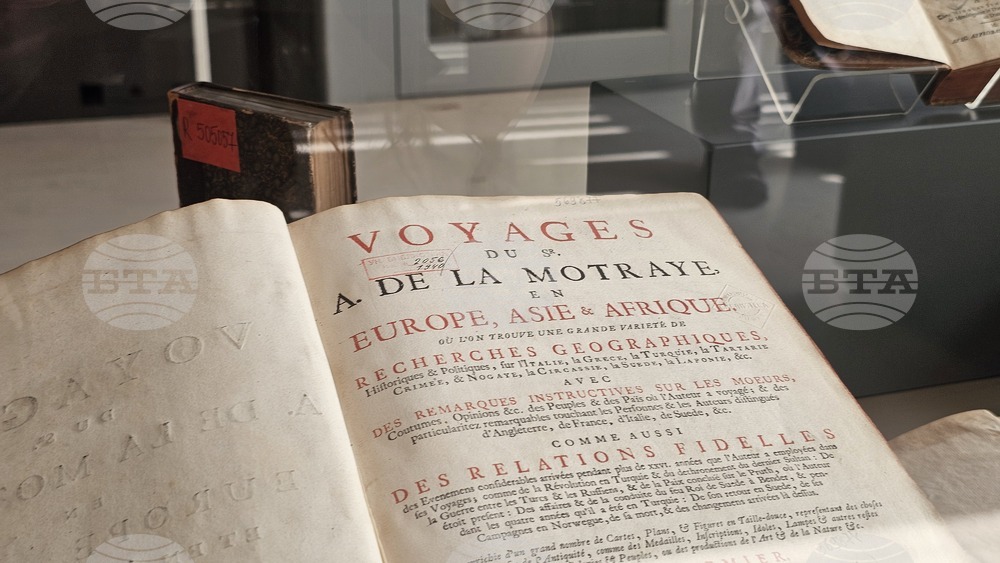 R 505057
VOYAGES
DU SR.
2056
1940
A. DE LA MOTRAYE,
EN
EUROPE, ASIE & AFRIQUE.
OÙ L'ON TROUVE UNE GRANDE VARIETÉ DE
RECHERCHES GEOGRAPHIQUES,
Historiques & Politiques, sur l'ITALIE, la GRECE, la TURQUIE, la TARTARIE
CRIMÉE, & NOGAYE, la CIRCASSIE, la SUEDE, la LAPONIE, &c.
AVEC
DES REMARQUES INSTRUCTIVES SUR LES MOEURS,
Coutumes, Opinions &c. des Peuples & des Païs où l'Auteur a voyagé, & des
particularitez remarquables touchant les Personnes & les Auteurs distingués
d'Angleterre, de France, d'Italie, de Suede, &c.
COMME AUSSI
DES RELATIONS FIDELLES
des Evenemens considerables arrivées pendant plus de XXVI. années que l'Auteur a employées dans
ses Voyages; comme de la Révolution en Turquie & du dethronement du dernier Sultan: De
la Guerre entre les Turcs & les Russiens, & de la Paix conclue sur le Pruth, où l'Auteur
étoit present: Des affaires & de la conduite du feu Roi de Suede à Bender, & pen-
dant les quatre années qu'il a été en Turquie: De son retour en Suede, de ses
Campagnes en Norwegue, de sa mort, & des changemens arrivées là dessus.
d'un grand nombre de Cartes, Plans, & Figures en Taille-douce, représentant des choses
d'Antiquité, comme des Medailles, Inscriptions, Idoles, Lampes & autres restes
Peuples, ou des productions de l'Art & de la Nature &c.
БТА
БТА